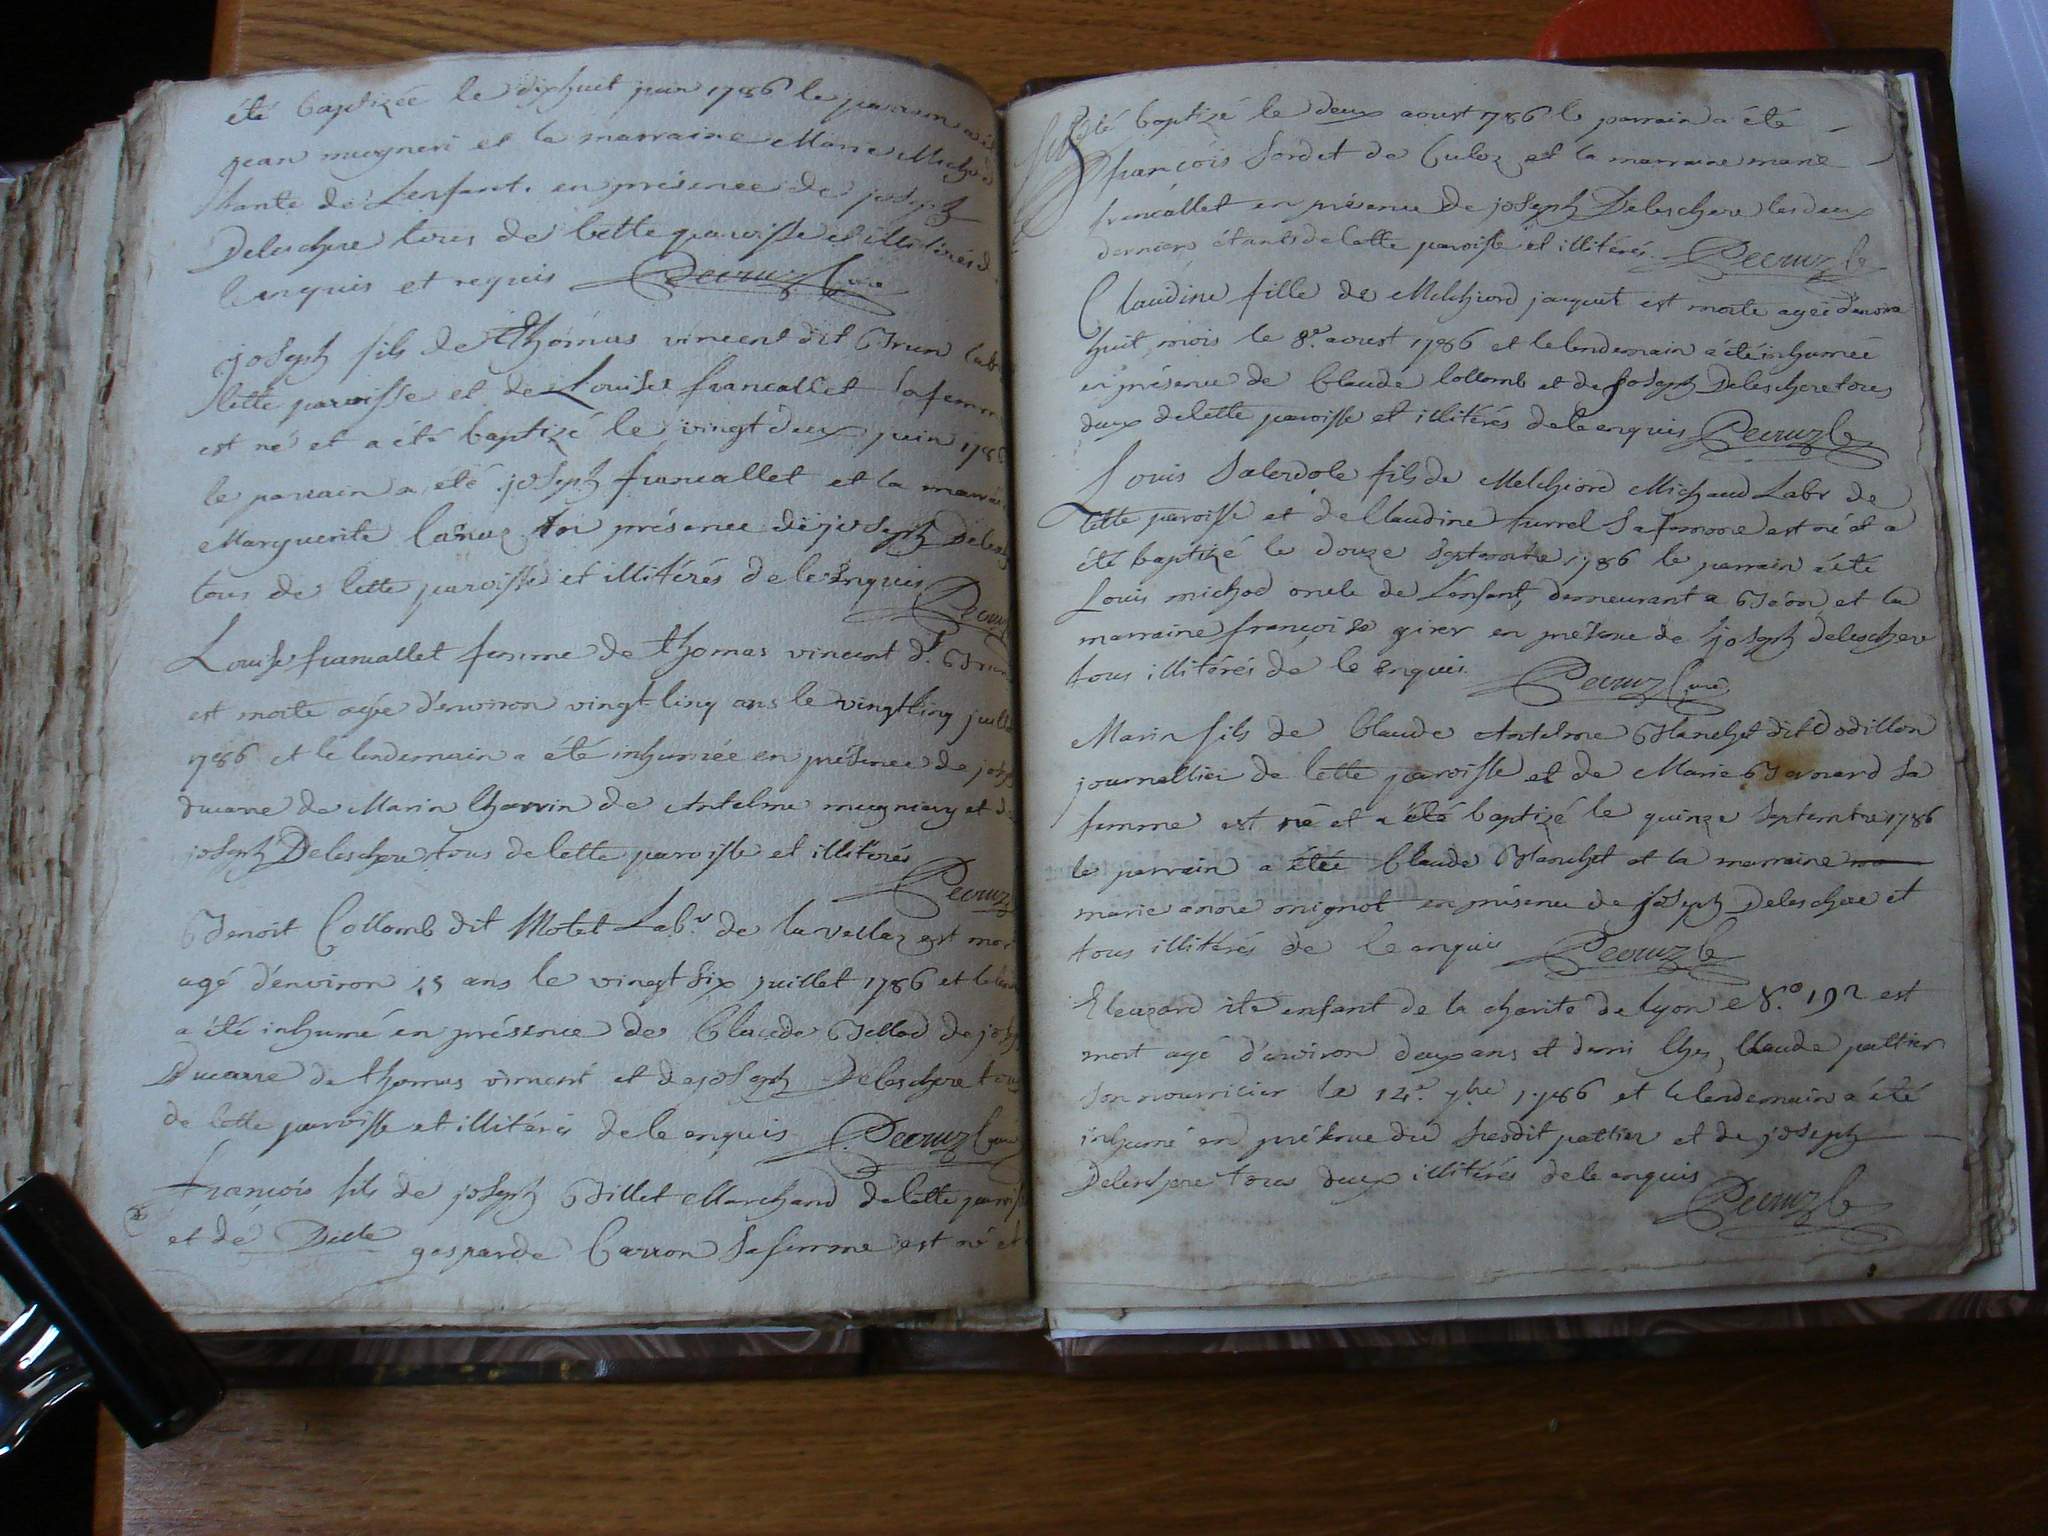 été baptizée le dixhuit juin 1786 le parrain a été
jean mugneri et la marraine Marie Michod
tante de L'enfant. en présence de joseph
Deleschere tous de cette paroisse et illitérés d
ce enquis et requis Decruz Curé
joseph fils de thomas vincent dit Brun Labr
cette paroisse et de Louise francallet sa femme
est né et a été baptizé le vingt deux juin 1786
le parrain a été joseph francallet et la marrai
Marguerite en présence de joseph Delesc
tous de cette paroisse et illitérés de ce enquis Decruz
Louise francallet femme de thomas vincent dt. Brun
est morte agée d'environ vingt cinq ans le vingt cinq juillet
1786 et le lendemain a été inhumée en présence de jose
ducarre de Marin Charvin de Antelme mugniery et d
joseph Deleschere tous de cette paroisse et illitérés
Decruz
Benoit Collomb dit Motet Labr. de la vellaz est mor
agé d'environ ans le vingt six juillet 1786 et le
a été inhumé en présence de Claude Bellod de jose
Ducarre de thomas vincent et de joseph Deleschere tous
de cette paroisse et illitérés de ce enquis Decruz Curé
francois fils de joseph Billet Marchand de cette paroisse
et de Dlle gasparde Carron sa femme est né et
été baptizé le deux aoust 1786 le parrain a été
françois sordet de Culoz et la marraine marie
francallet en présence de joseph Deleschere les deux
derniers étants de cette paroisse et illitérés. Decruz C
Claudine fille de Melchiord jacquet est morte agée d'environ
huit mois le 8e. aoust 1786 et le lendemain a été inhumée
en présence de Claude Collomb et de joseph Deleschere tous
deux de cette paroisse et illitérés de ce enquis Decruz C
Louis sacerdote fils de Melchiord Michaud Labr de
cette paroisse et de Claudine turrel sa femme est né et a
été baptizé le douze septembre 1786 le parrain a été
Louis michod oncle de L'enfant, demeurant a Béon, et la
marraine françoise girer en présence de joseph deleschere
tous illitérés de ce enquis. Decruz Curé
Marin fils de Claude Antelme Blanchet dit Dodillon
journallier de cette paroisse et de Marie Bernard sa
femme est né et a été baptizé le quinze septembre 1786
le parrain a été Claude Blanchet et la marraine
marie anne mignot en présence de joseph Deleschere et
tous illitérés de ce enquis Decruz C
enfant de la charité de Lyon N.o 192 est
mort agé d'environ deux ans et demi chez Claude peltier
son nourricier le 14e. 7bre 1786 et le lendemain a été
inhumé en présence du susdit peltier et de joseph
Deleschere tous deux illitérés de ce enquis
Decruz C